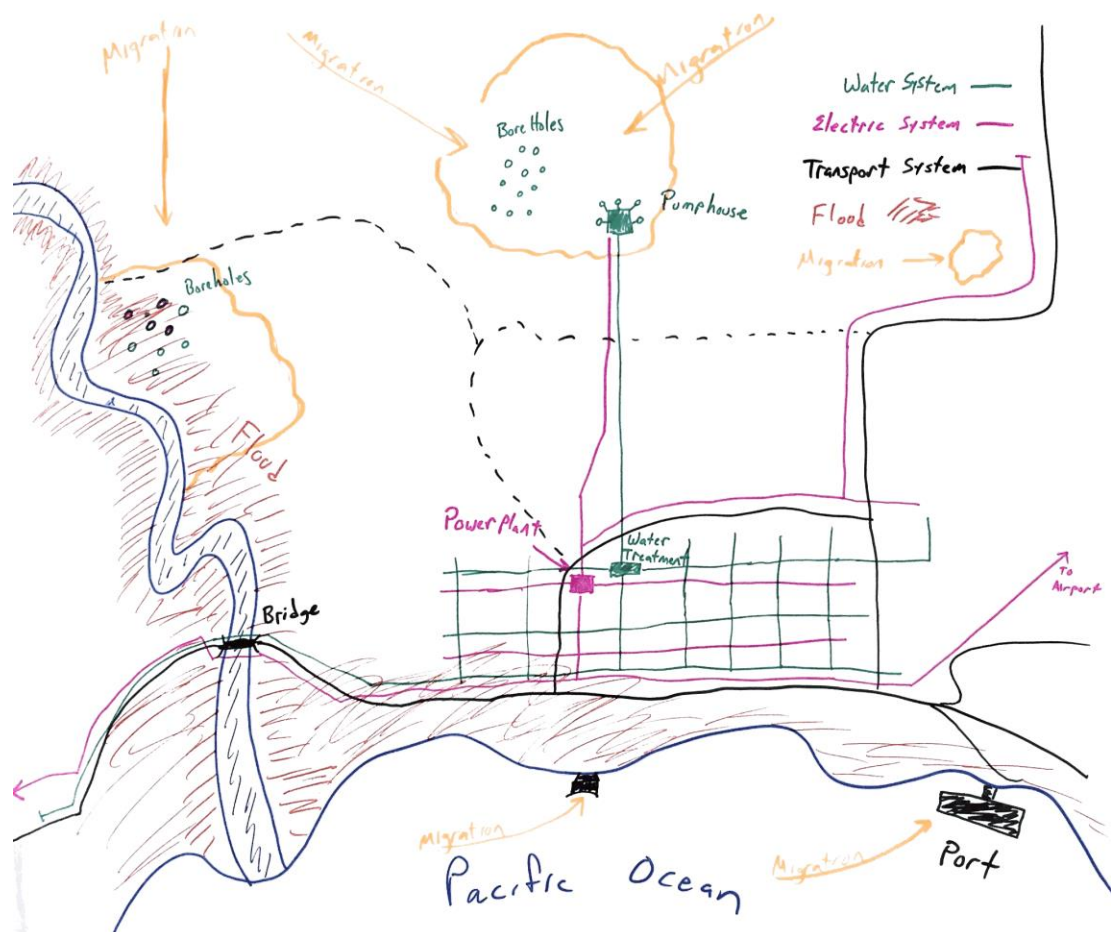 Migration
Migration
Migration
Water System
Electric System
Transport System
Flood
Migration
Bore Holes
Pumphouse
Boreholes
Flood
Power Plant
Water
Treatment
To
Airport
Bridge
Migration
Migration
Port
Pacific Ocean